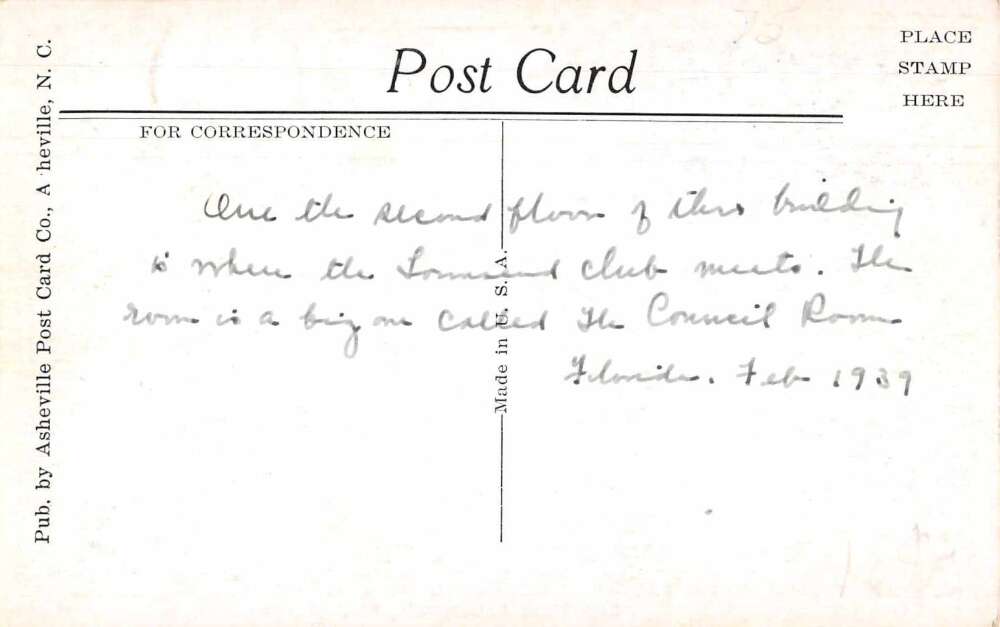 Post Card
PLACE
STAMP
HERE
FOR CORRESPONDENCE
One the second floor of this building
is where the Townsend club meets. The
room is a big one called The Council Room
Florida. Feb 1939
Made in U. S. A.
Pub. by Asheville Post Card Co., A heville, N. C.